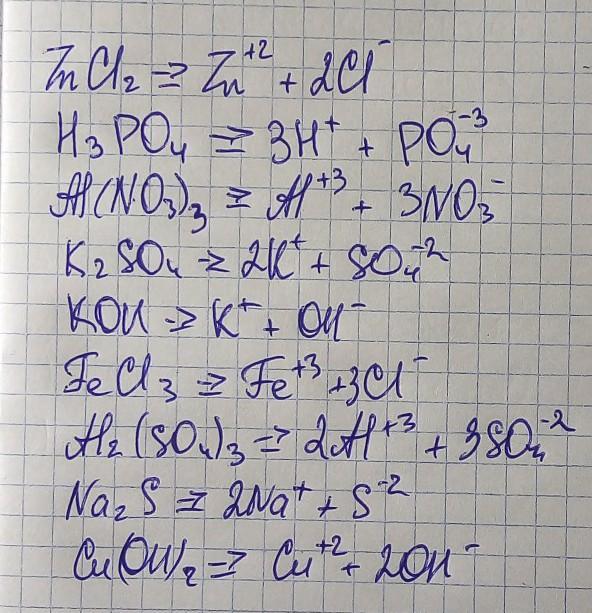 ZnCl₂ ⇄ Zn⁺² + 2Cl⁻
H₃PO₄ ⇄ 3H⁺ + PO₄⁻³
Al(NO₃)₃ ⇄ Al⁺³ + 3NO₃⁻
K₂SO₄ ⇄ 2K⁺ + SO₄⁻²
KOH ⇄ K⁺ + OH⁻
FeCl₃ ⇄ Fe⁺³ + 3Cl⁻
Al₂(SO₄)₃ ⇄ 2Al⁺³ + 3SO₄⁻²
Na₂S ⇄ 2Na⁺ + S⁻²
Cu(OH)₂ ⇄ Cu⁺² + 2OH⁻